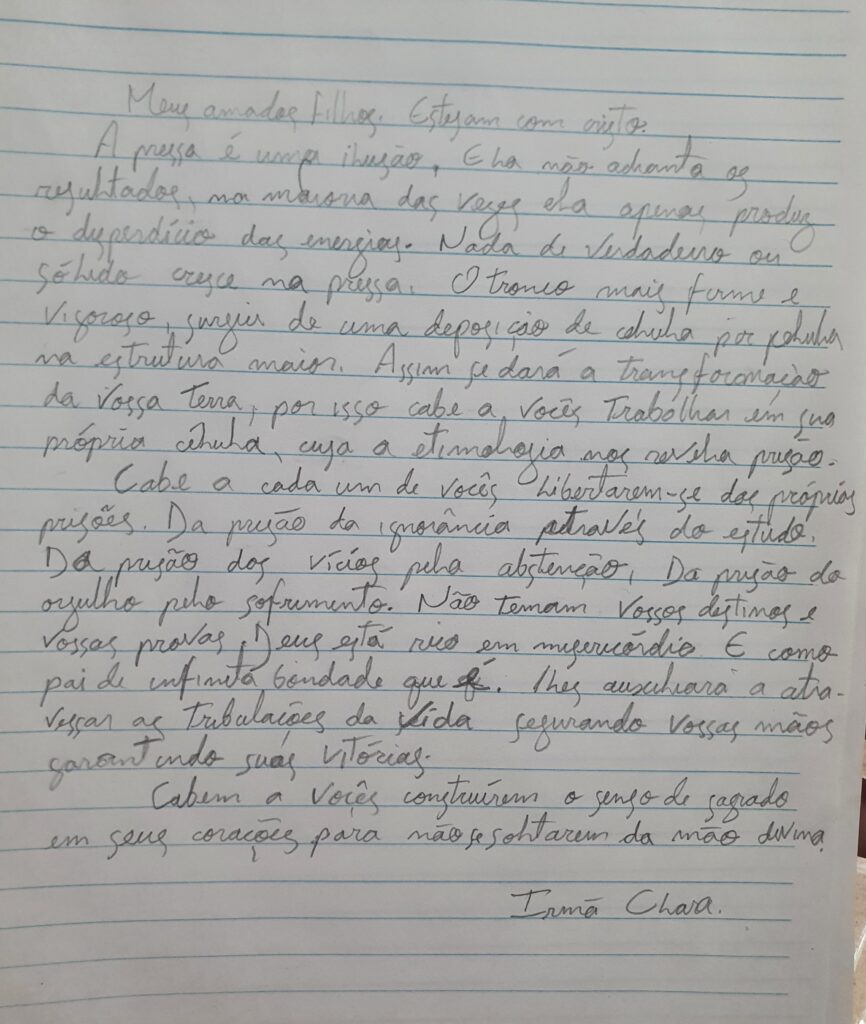 Meus amados filhos. Estejam com cristo.
A pressa é uma ilusão, Ela não adianta os
resultados, na maioria das vezes ela apenas produz
o disperdício das energias. Nada de verdadeiro ou
sólido cresce na pressa. O tronco mais firme e
vigoroso, surgiu de uma deposição de célula por célula
na estrutura maior. Assim se dará a transformação
da vossa Terra, por isso cabe a vocês Trabalhar em sua
própria célula, cuja a etimologia nos revela prisão.
Cabe a cada um de vocês libertarem-se das próprias
prisões. Da prisão da ignorância através do estudo.
Da prisão dos vícios pela abstenção, Da prisão do
orgulho pelo sofrimento. Não temam vossos destinos e
vossas provas, Deus está rico em misericórdia E como
pai de infinita bondade que é. lhes auxiliará a atra-
vessar as tribulações da vida segurando vossas mãos
garantindo suas vitórias.
Cabem a vocês construírem o senso de sagrado
em seus corações para não se soltarem da mão divina.
Irmã Clara.